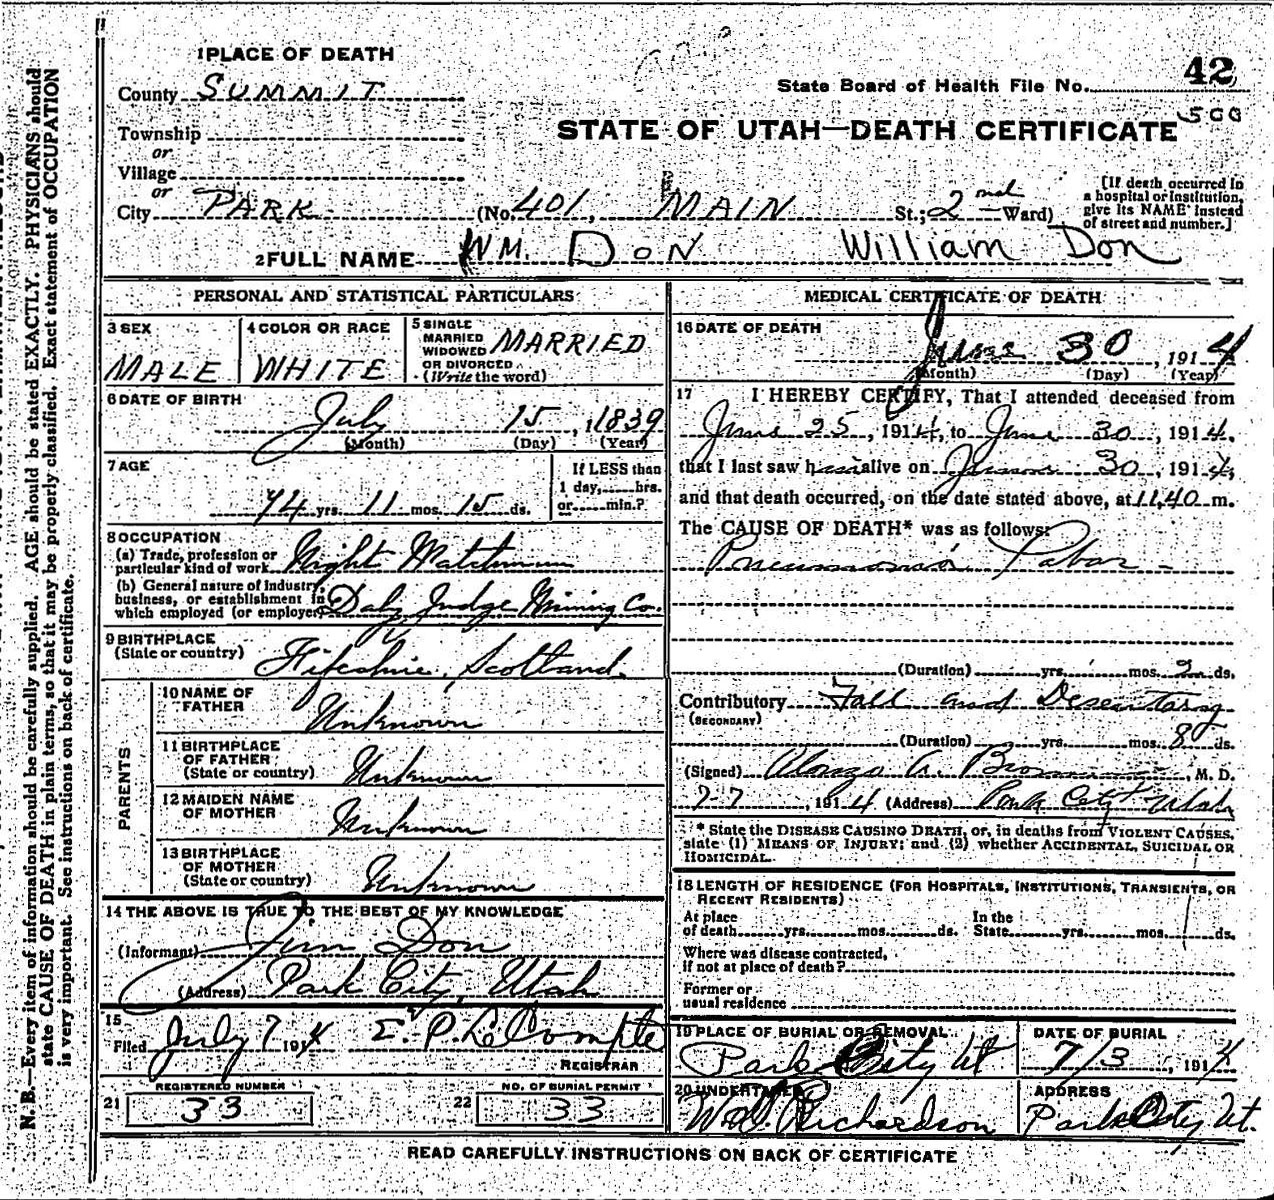 1 PLACE OF DEATH
County SUMMIT
State Board of Health File No. 42
500
Township
or
STATE OF UTAH—DEATH CERTIFICATE
Village
or
City PARK (No. 401, MAIN St.; 2nd Ward)
[If death occurred in
a hospital or institution,
give its NAME instead
of street and number.]
2 FULL NAME WM. DON William Don
PERSONAL AND STATISTICAL PARTICULARS
3 SEX
MALE
4 COLOR OR RACE
WHITE
5 SINGLE
MARRIED
WIDOWED
OR DIVORCED
(Write the word)
MARRIED
6 DATE OF BIRTH
July 15, 1839
(Month) (Day) (Year)
7 AGE
74 yrs. 11 mos. 15 ds.
If LESS than
1 day, hrs.
or min.?
8 OCCUPATION
(a) Trade, profession or
particular kind of work Night Watchman
(b) General nature of Industry,
business, or establishment in
which employed (or employer) Daly Judge Mining Co.
9 BIRTHPLACE
(State or country) Fifeshire, Scotland.
PARENTS
10 NAME OF
FATHER Unknown
11 BIRTHPLACE
OF FATHER
(State or country) Unknown
12 MAIDEN NAME
OF MOTHER Unknown
13 BIRTHPLACE
OF MOTHER
(State or country) Unknown
14 THE ABOVE IS TRUE TO THE BEST OF MY KNOWLEDGE
(Informant) Jim Don
(Address) Park City, Utah
15
Filed July 7 1914 E. P. LeCompte
REGISTRAR
REGISTERED NUMBER
21 33
NO. OF BURIAL PERMIT
22 33
MEDICAL CERTIFICATE OF DEATH
16 DATE OF DEATH
June 30, 1914
(Month) (Day) (Year)
17 I HEREBY CERTIFY, That I attended deceased from
June 25, 1914, to June 30, 1914,
that I last saw him alive on June 30, 1914,
and that death occurred, on the date stated above, at 11.40 m.
The CAUSE OF DEATH* was as follows:
Pneumonia
(Duration) yrs. mos. 2 ds.
Contributory Fall and Desentary
(SECONDARY)
(Duration) yrs. mos. 8 ds.
(Signed) Alonzo, M. D.
7-7, 1914 (Address) Park City Utah
* State the DISEASE CAUSING DEATH, or, in deaths from VIOLENT CAUSES,
state (1) MEANS OF INJURY; and (2) whether ACCIDENTAL, SUICIDAL OR
HOMICIDAL.
18 LENGTH OF RESIDENCE (FOR HOSPITALS, INSTITUTIONS, TRANSIENTS, OR
RECENT RESIDENTS)
At place
of death yrs. mos. ds.
In the
State yrs. mos. ds.
Where was disease contracted,
if not at place of death?
Former or
usual residence
19 PLACE OF BURIAL OR REMOVAL
Park City Ut
DATE OF BURIAL
7/3, 1914
20 UNDERTAKER
Richardson
ADDRESS
Park City Ut.
READ CAREFULLY INSTRUCTIONS ON BACK OF CERTIFICATE
N. B.—Every item of information should be carefully supplied. AGE should be stated EXACTLY. PHYSICIANS should
state CAUSE OF DEATH in plain terms, so that it may be properly classified. Exact statement of OCCUPATION
is very important. See instructions on back of certificate.